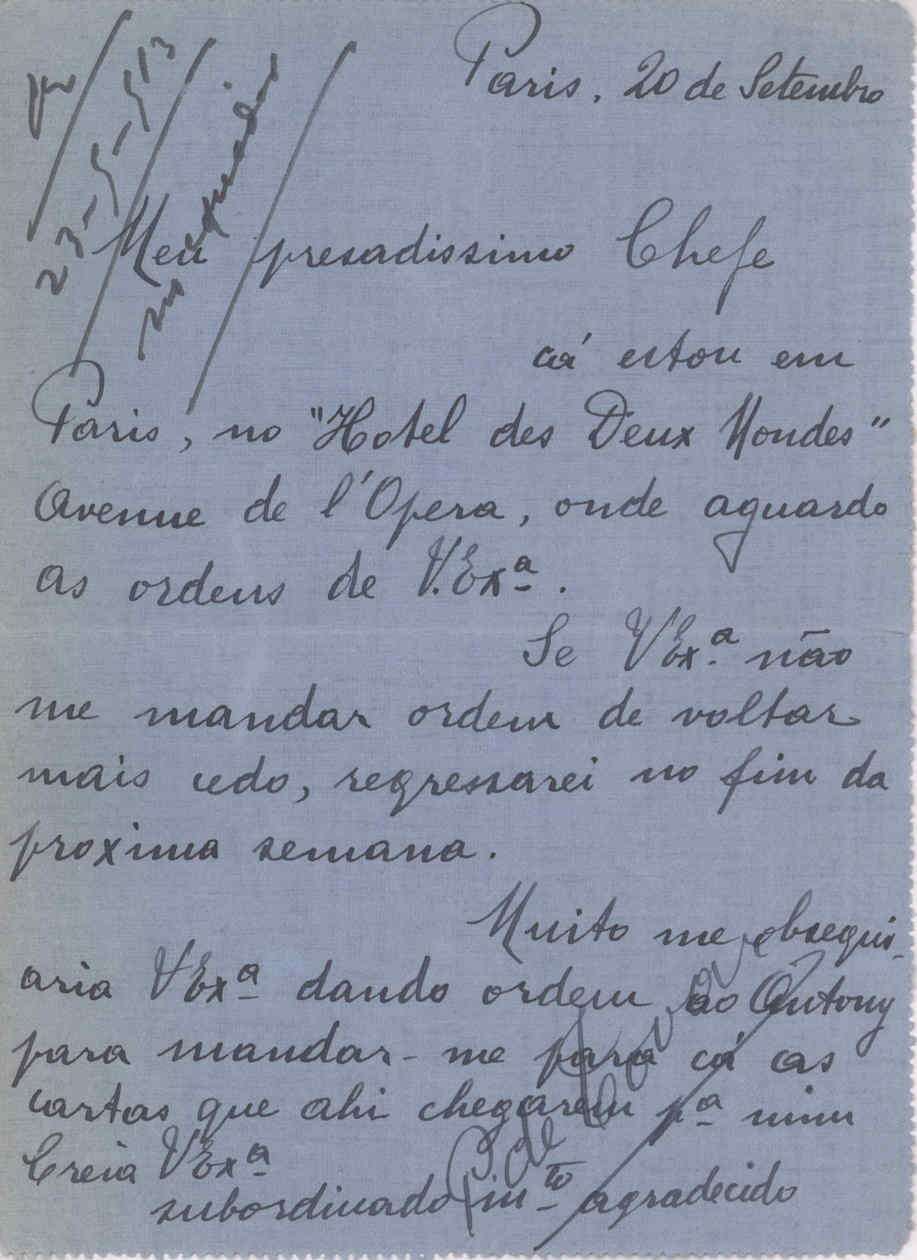 Paris, 20 de Setembro
23-5-913
Meu presadissimo Chefe
cá estou em
Paris, no "Hotel des Deux Mondes"
Avenue de l'Opera, onde aguardo
as ordens de V.Exª.
Se VExª não
me mandar ordem de voltar
mais cedo, regressarei no fim da
proxima semana.
Muito me obsequi-
aria VExª dando ordem ao Antony
para mandar-me para cá as
cartas que ahi chegarem pª mim
Creia VExª
subordinado mto agradecido